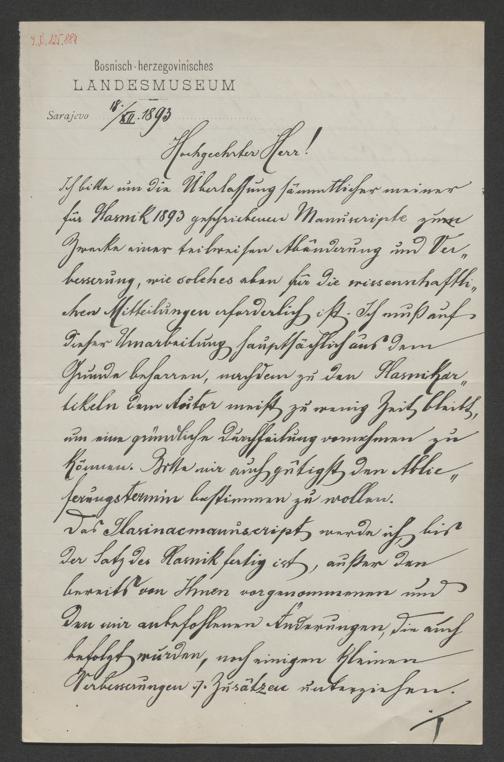 Bosnisch-herzegovinisches
LANDESMUSEUM
Sarajevo 18./XII. 1893
Hochgeehrter Herr!
Ich bitte um die Überlassung sämmtlicher meiner
für Glasnik 1893 geschriebenen Manuscripte zum
Zwecke einer teilweisen Abänderung und Ver„
besserung, wie solches eben für die wissenschaftli„
chen Mitteilungen erforderlich ist. Ich muß auf
dieser Umarbeitung hauptsächlich aus dem
Grunde beharren, nachdem zu den Glasnikar„
tikeln dem Autor meist zu wenig Zeit bleibt,
um eine gründliche Durchfeilung vornehmen zu
können. Bitte mir auch gütigst den Ablie„
ferungstermin bestimmen zu wollen.
Das Glasinacmanuscript werde ich, bis
der Satz des Glasnik fertig ist, außer den
bereits von Ihnen vorgenommenen und
den mir anbefohlenen Änderungen, die auch
befolgt wurden, noch einigen kleinen
Verbesserungen Zusätzen unterziehen.